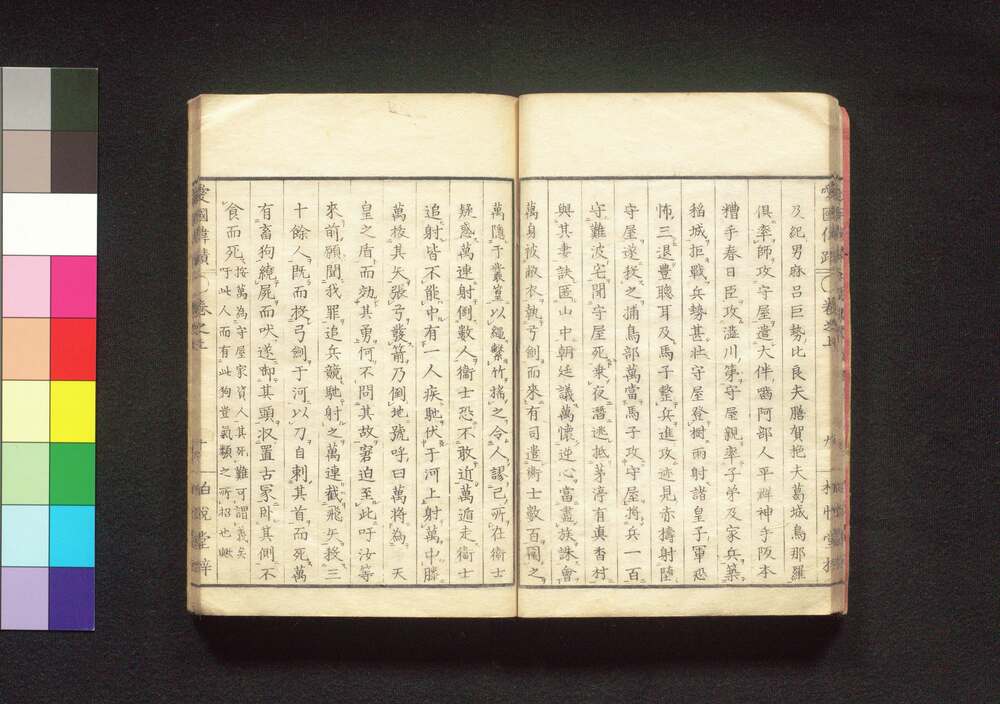 及紀男麻呂巨勢比良夫膳賀拖夫葛城烏那羅
俱率師攻守屋遣大伴嚙阿部人平群神手阪本
糟手春日臣攻澁川第守屋親率子弟及家兵築
稻城拒戰兵勢甚壯守屋登樹雨射諸皇子軍恐
怖三退豊聰耳及馬子整兵進攻迹見赤檮射墮
守屋遂殺之捕鳥部萬當馬子攻守屋將兵一百
守難波宅聞守屋死乘夜潛逃抵茅渟有真香村
與其妻訣匿山中朝廷議萬懷逆心當盡族誅會
萬身被敝衣執弓劍而來有司遣衛士數百圍之
萬隱于叢篁以繩繫竹搖之令人謬己所在衛士
疑惑萬連射倒數人衞士恐不敢近萬遁走衞士
追射皆不能中有一人疾馳伏于河上射萬中膝
萬拔其矢張弓發箭乃倒地號呼曰萬將為 天
皇之盾而効其勇何不問其故窘迫至此吁汝等
來前願聞我罪追兵競馳射之萬連截飛矢殺三
十餘人既而投弓劍于河以刀自刺其首而死萬
有畜狗繞屍而吠遂御其頭收置古冢卧其側不
食而死
按萬為守屋家資人其死難可謂義矣
吁此人而有此狗豈氣類之所招也歟
愛國偉績 卷之上